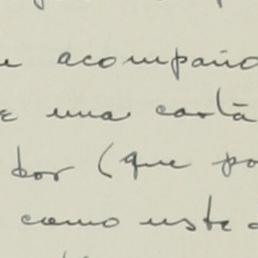 acompaño
una carta
dor (que po
como uste